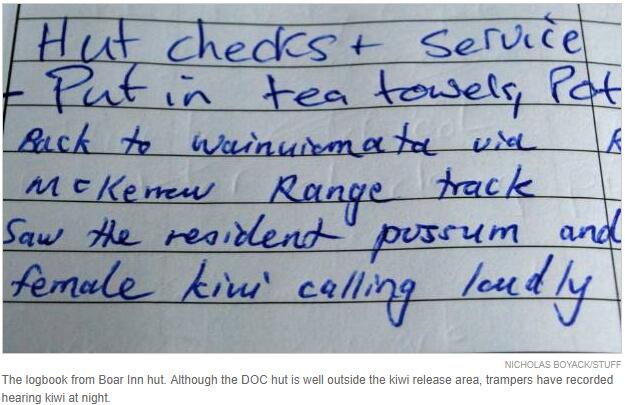 Hut checks + Service
- Put in tea towels, Pot
Back to Wainuiomata via R
McKerrow Range track
Saw the resident possum and
female kiwi calling loudly
NICHOLAS BOYACK/STUFF
The logbook from Boar Inn hut. Although the DOC hut is well outside the kiwi release area, trampers have recorded
hearing kiwi at night.